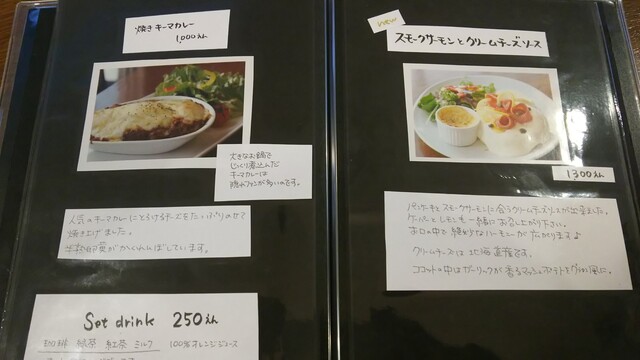 焼きキーマカレー
1,000えん
大きなお鍋で
じっくり煮込んだ
キーマカレーは
隠れファンが多いのです。
人気のキーマカレーにとろけるチーズをたっぷりのせて
焼き上げました。
半熟卵黄がかくれんぼしています。
Set drink 250えん
珈琲 紅茶 ミルク 100%オレンジジュース
スモークサーモンとクリームチーズソース
1300えん
パンケーキとスモークサーモンに合うクリームチーズソースが出来ました。
ケッパーとレモンも一緒にお召し上がり下さい。
お口の中で絶妙なハーモニーが広がります♪
クリームチーズは北海道産です。
ココットの中はガーリックが香るマッシュポテトをグラタン風に。